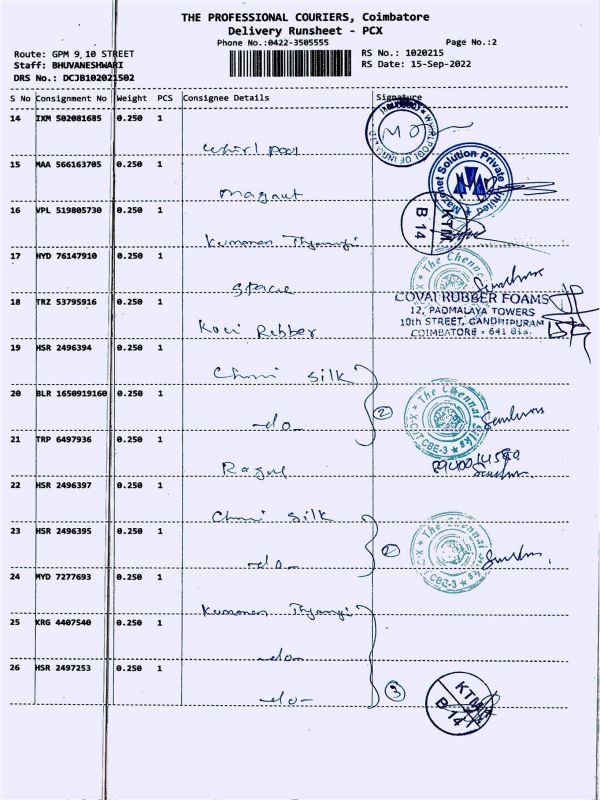 THE PROFESSIONAL COURIERS, Coimbatore
Delivery Runsheet - PCX
Phone No.:0422-3505555
Page No.:2
Route: GPM 9,10 STREET
RS No.: 1020215
Staff: BHUVANESHWARI
RS Date: 15-Sep-2022
DRS No.: DCJB102021502
S No Consignment No Weight PCS Consignee Details Signature
14 IXM 502081685 0.250 1
Whirlpool
WHIRLPOOL OF INDIA
15 MAA 566163705 0.250 1
Magnut
Solution Private Limited
16 VPL 519805730 0.250 1
Kumaran
KTM
B 14
17 HYD 76147910 0.250 1
The Chennai
18 TRZ 53795916 0.250 1
COVAI RUBBER FOAMS
12, PADMALAYA TOWERS
10th STREET, GANDHIPURAM
COIMBATORE - 641 012.
Rubber
19 HSR 2496394 0.250 1
Silk
20 BLR 1650919160 0.250 1
-do-
2
The Chennai Silks
CBE-3
21 TRP 6497936 0.250 1
22 HSR 2496397 0.250 1
Silk
23 HSR 2496395 0.250 1
-do-
2
The Chennai Silks
CBE-3
24 MYD 7277693 0.250 1
Kumaran
25 KRG 4407540 0.250 1
-do-
26 HSR 2497253 0.250 1
-do-
3
KTM
B 14